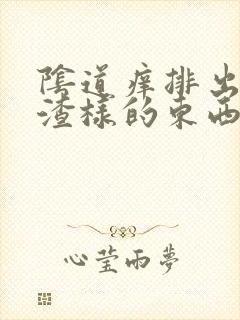 陰道痒排出
渣樣的東西
心莹雨夢